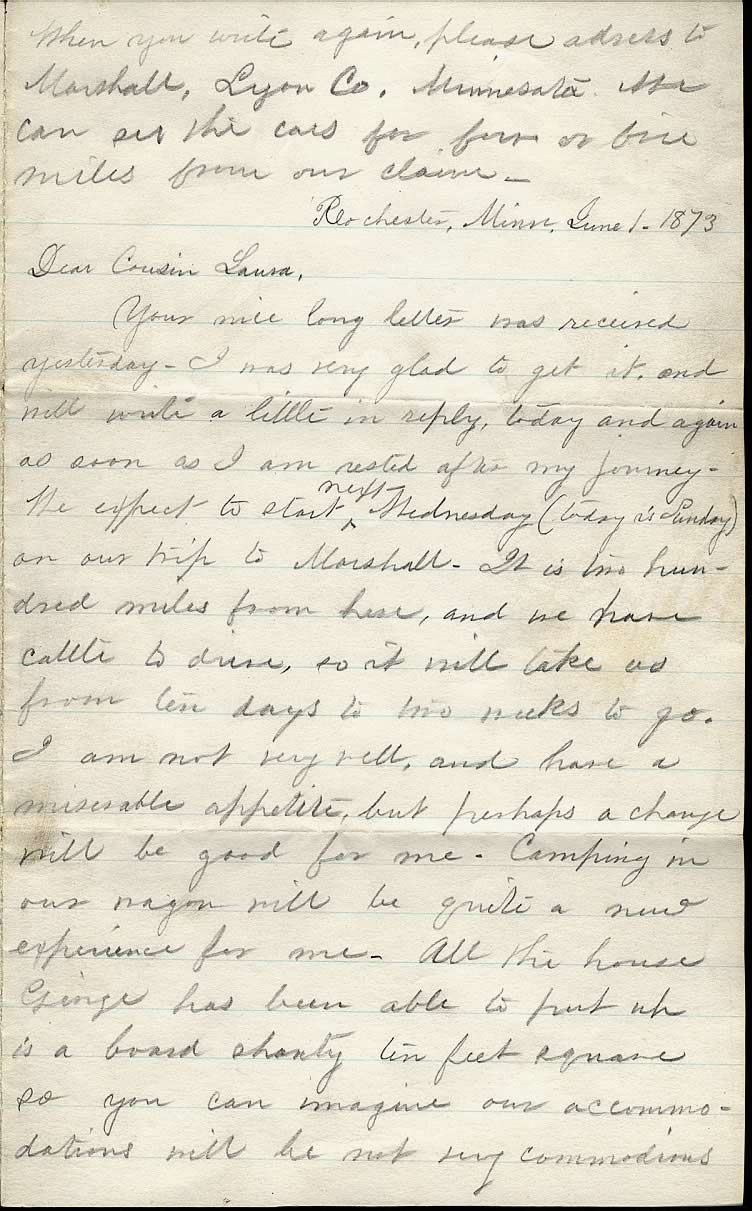 When you write again, please adress to
Marshall, Lyon Co. Minnesota. We
can see the cars for four or five
miles from our claim -
Rochester, Minn, June 1 - 1873
Dear Cousin Laura,
Your nice long letter was received
yesterday - I was very glad to get it, and
will write a little in reply, today and again
as soon as I am rested after my journey -
We expect to start next Wednesday (today is Sunday)
on our trip to Marshall - It is two hun-
dred miles from here, and we have
cattle to drive, so it will take us
from ten days to two weeks to go.
I am not very well, and have a
miserable appetite, but perhaps a change
will be good for me - Camping in
our wagon will be quite a new
experience for me - All the house
George has been able to put up
is a board shanty ten feet square
so you can imagine our accommo-
dations will be not very commodious